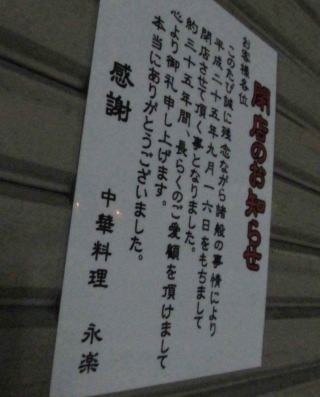 閉店のお知らせ
お客様各位
このたび誠に残念ながら諸般の事情により
平成二十五年九月一六日をもちまして
閉店させて頂く事となりました。
約三十五年間、長らくのご愛顧を頂けまして
心より御礼申し上げます。
本当にありがとうございました。
感謝
中華料理 永楽